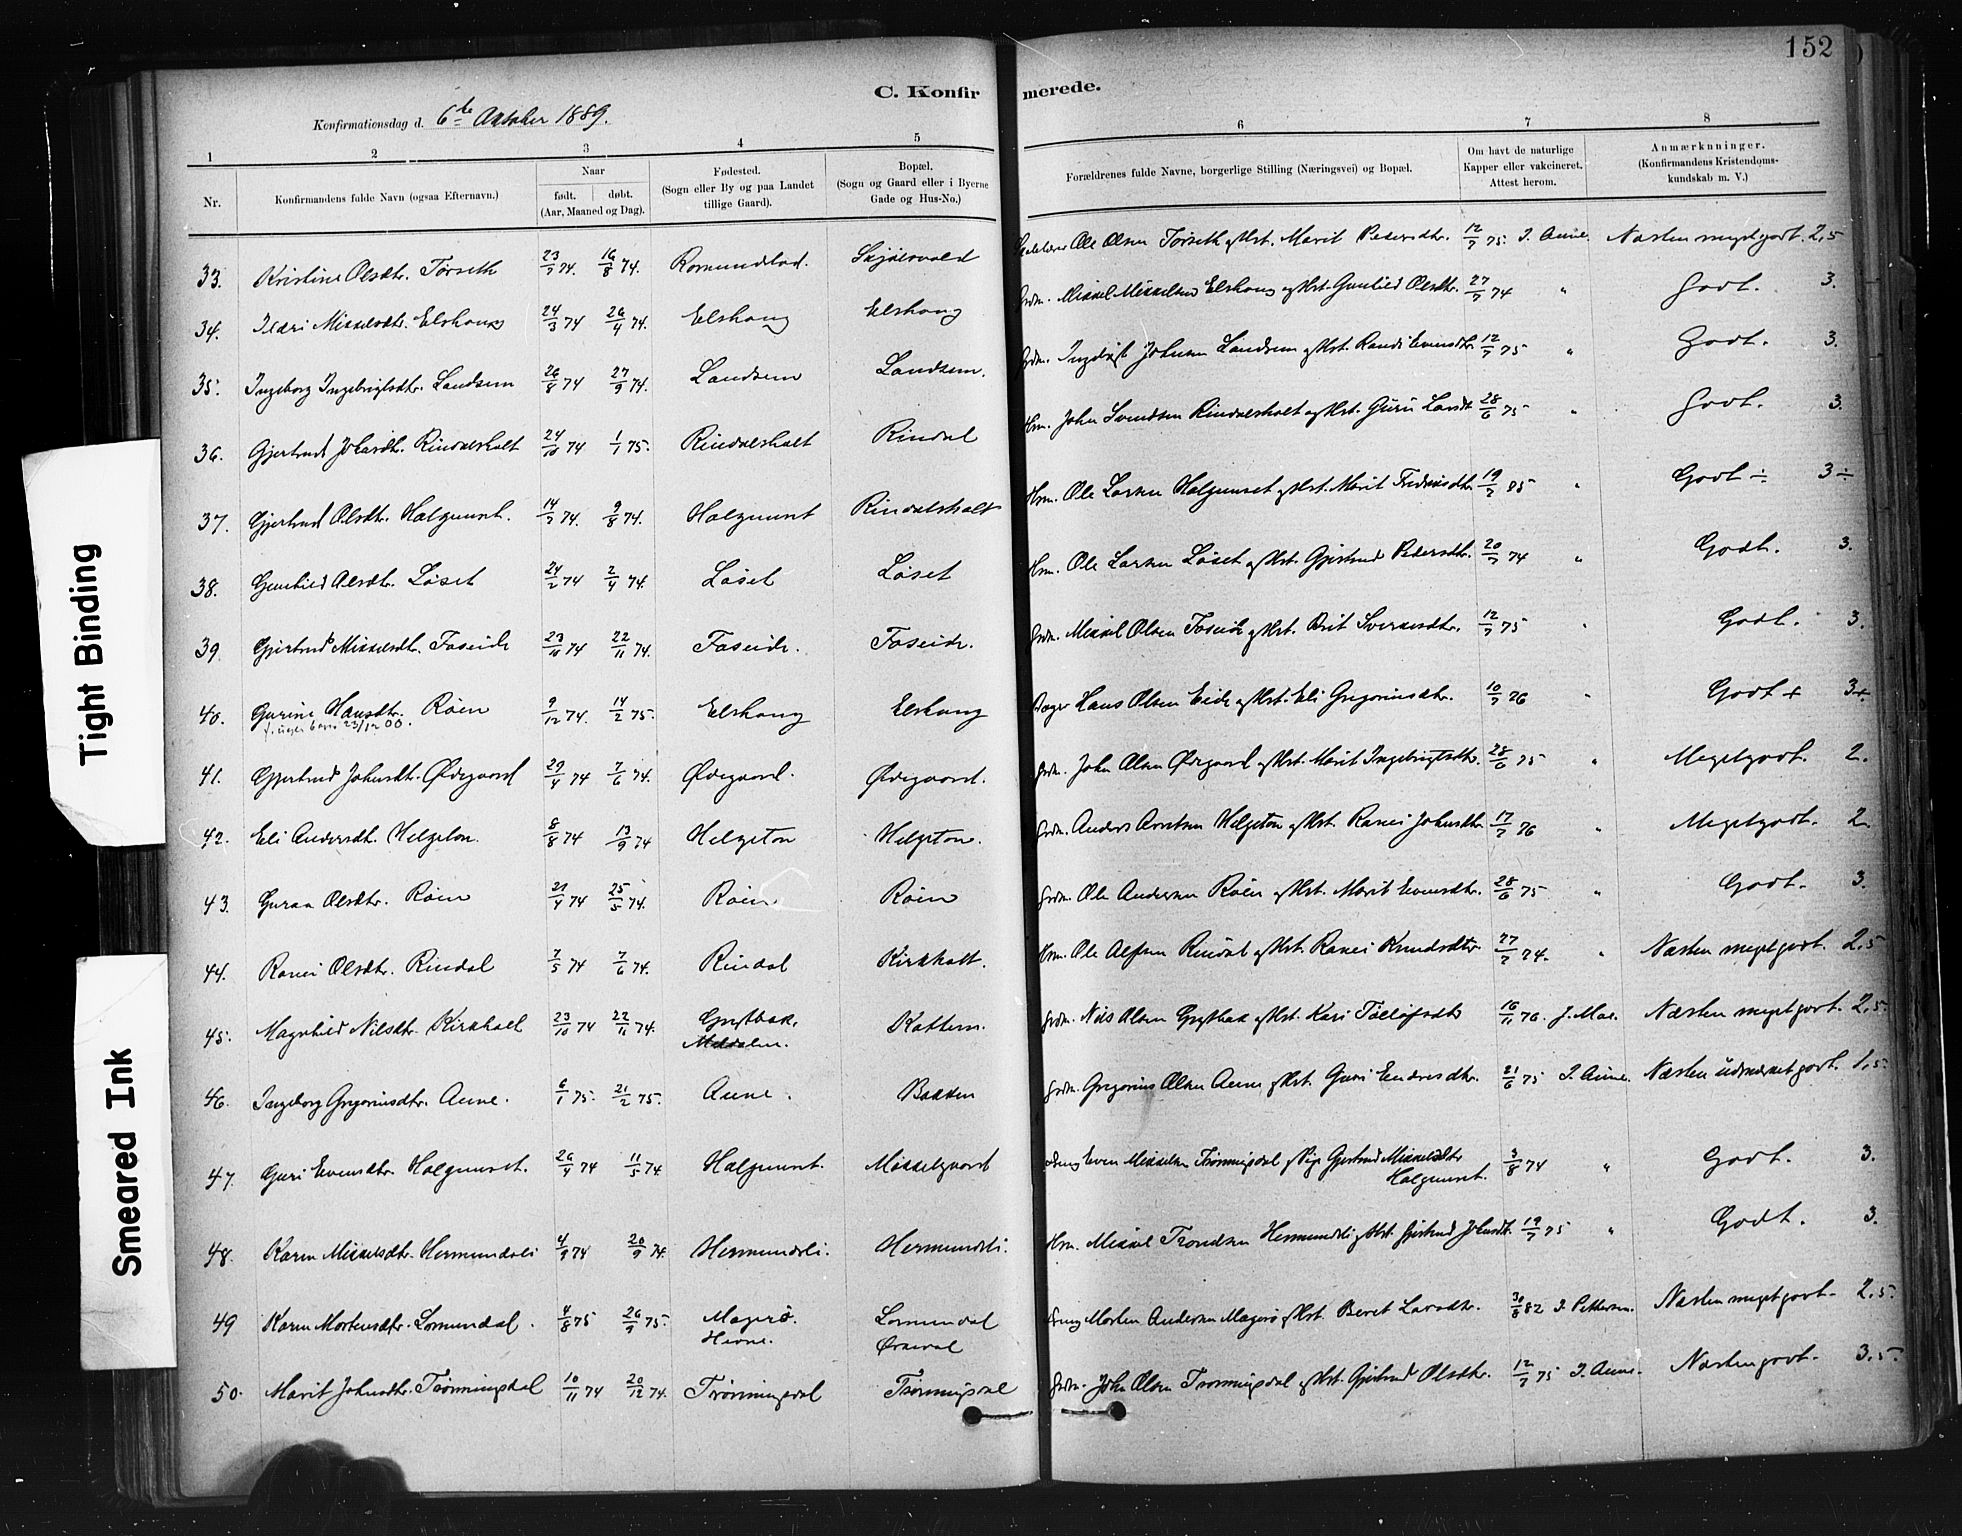 152
C. Konfirmerede.
Konfirmationsdag d. 6te Oktober 1889.
1 2 3 4 5 6 7 8
Nr.
Konfirmandens fulde Navn (ogsaa Efternavn.)
Naar
født. døbt.
(Aar, Maaned og Dag).
Fødested.
(Sogn eller By og paa Landet
tillige Gaard).
Bopæl.
(Sogn og Gaard eller i Byerne
Gade og Hus-No.)
Forældrenes fulde Navne, borgerlige Stilling (Næringsvei) og Bopæl.
Om havt de naturlige
Kapper eller vakcineret.
Attest herom.
Anmærkninger.
(Konfirmandens Kristendoms-
kundskab m. V.)
33. Kristine Olsdtr. Torseth 23/7 74. 16/8 74. Romundstad. Skjølsvold Ole Olsen Torseth og Hst. Marit Pedersdtr. 12/7 75. I. Aune. Næsten meget godt. 2,5
34. Ildri Mikkelsdtr. Elshaug 24/3 74 26/4 74. Elshaug Elshaug Grdm. Mikkel Mikkelsen Elshaug og Hst. Gunhild Olsdtr. 27/7 74 " Godt. 3.
35. Ingeborg Ingebrigtsdtr. Landsem 26/8 74 27/9 74. Landsem Landsem. Grdm. Ingebrigt Johnsen Landsem og Hst. Randi Evensdtr. 12/7 75 " Godt. 3.
36. Gjertrud Johnsdtr. Rindalsholt 24/10 74 1/1 75. Rindalsholt Rindal Hm. John Svendsen Rindalsholt og Hst. Guru Larsdt. 28/6 75 " Godt. 3.
37. Gjertrud Olsdtr. Halgunset. 14/7 74. 9/8 74. Halgunset Rindalsholt Hm. Ole Larsen Halgunset og Hst. Marit Fredriksdtr. 19/7 85 " Godt ÷ 3÷
38. Gunhild Olsdtr. Løset 24/2 74 2/4 74. Løset Løset Hm. Ole Larsen Løset og Hst. Gjertrud Pedersdtr. 20/7 74 " Godt. 3.
39. Gjertrud Mikkelsdtr. Foseide 23/10 74 22/11 74. Foseide. Foseide. Grdm. Mikkel Olsen Foseide og Hst. Brit Sversdtr. 12/7 75 " Godt. 3.
40. Gurine Hansdtr. Røen 9/12 74. 14/2 75. Elshaug Elshaug Hans Olsen Eide og Hst. Eli Gregoriusdtr. 10/7 76 " Godt + 3+
41. Gjertrud Johnsdtr. Ødegaard 29/4 74 7/6 74. Ødegaard. Ødegaard. Grdm. John Olsen Ødegaard og Hst. Marit Ingebrigtsdtr. 28/6 75 " Meget godt. 2.
42. Eli Andersdtr. Helgeton. 8/8 74 13/9 74 Helgeton Helgeton. Grdm. Anders Arntsen Helgeton og Hst. Ranei Johnsdtr. 17/7 76 " Meget godt. 2.
43. Guraa Olsdtr. Røen 21/4 74 25/5 74. Røen Røen Grdm. Ole Andersen Røen og Hst. Marit Evensdtr. 28/6 75 " Godt. 3.
44. Ranei Olsdtr. Rindal 7/5 74 7/6 74. Rindal Kirkholt. Hm. Ole Alfsen Rindal og Hst. Ranei Knudsdtr. 27/7 74. " Næsten meget godt. 2,5
45. Magnhild Nilsdtr. Kirkholt 23/10 74 22/11 74. Grytbak, Kattem. Grdm. Nils Olsen Grytbak og Hst. Kari Tollefsdtr. 16/11 76. J. Moe. Næsten meget godt. 2,5.
Meldalen.
46. Ingeborg Gregoriusdtr. Aune. 6/1 75. 21/2 75. Aune. Bakken Grdm. Gregorius Olsen Aune og Hst. Guri Endresdtr. 21/6 75 I. Aune. Næsten udmerket godt. 1,5.
47. Guri Evensdtr. Halgunset. 26/4 74 11/5 74 Halgunset. Mosselgaard Ung. Even Mikkelsen Tronningsdal og Pige Gjertrud Mikkelsdtr 3/8 74 " Godt. 3.
Halgunset.
48. Karen Mikkelsdtr. Hermundsli 4/9 74 20/9 74. Hermundsli. Hermundsli. Hm. Mikkel Trondsen Hermundsli og Hst. Gjertrud Johnsdtr. 19/7 75 " Godt. 3.
49 Karen Mortensdtr. Lomundal. 4/8 75 26/9 75. Magerø. Lomundal Morten Andersen Magerø og Hst. Beret Larsdtr. 30/8 82 I. Pettersen. Næsten meget godt. 2,5.
Hevne. Ørndal
50. Marit Johnsdtr. Trønningsdal 10/11 74 20/12 74. Trønningsdal Tronningsdal Grdm. John Olsen Tronningsdal og Hst. Gjertrud Olsdtr. 12/7 75 I. Aune. Næsten godt. 3,5.
Tight Binding
Smeared Ink